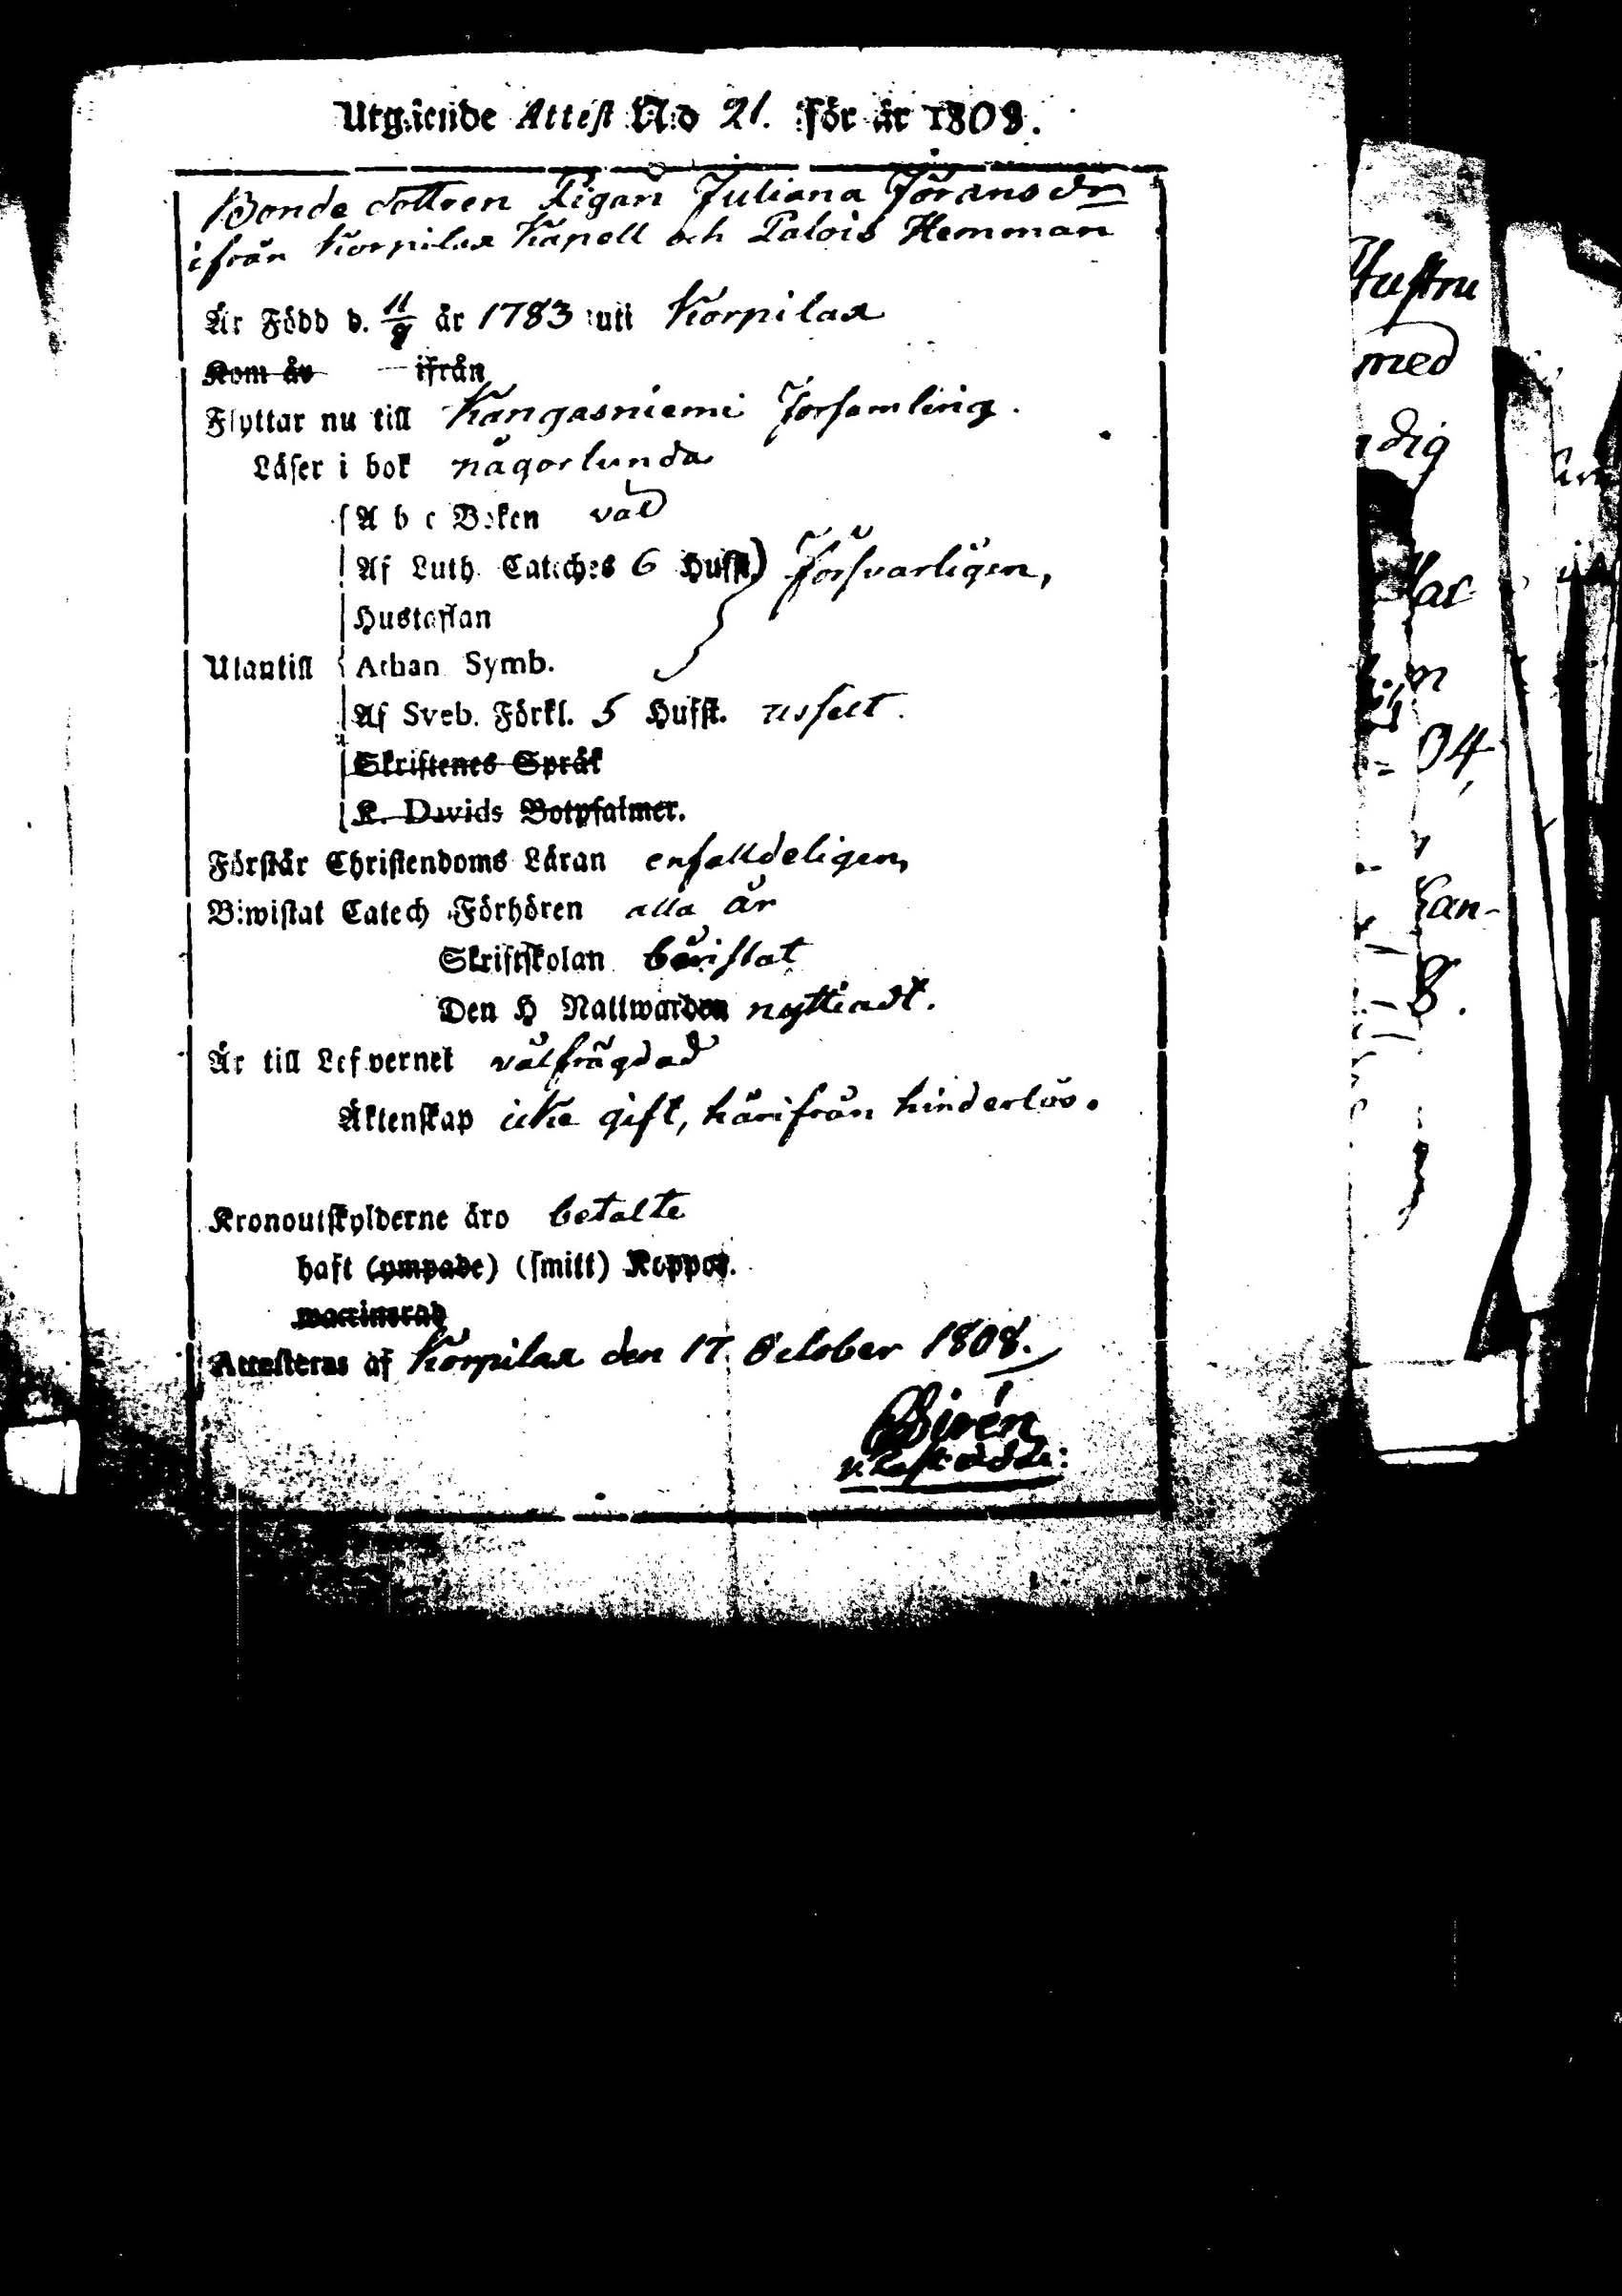 Utgående Attest N:o 21. För år 1808.
Bonde dottren Pigan Juliana Jöransdr
ifrån Korpilax Kapell och Palois Hemman
Är Född d. 11/9 år 1783 uti Korpilax
Kom år ifrån
Flyttar nu till Kangasniemi Församling.
Läser i bok någorlunda
A b c Boken väl
Af Luth. Cateches 6 Hufst. Försvarligen,
Hustaflan
Utantill Athan Symb.
Af Sveb. Förkl. 5 Hufst. uselt.
Skriftenes Språk
K. Davids Botpsalmer.
Förstår Christendoms Läran enfalldeligen,
Biwistat Catech Förhören alla år
Skriftskolan bevistat
Den H Nattwarden nyttiadt.
Är till Lefvernet välfrägdad
Äktenskap icke gift, härifrån hinderlös.
Kronoutskylderne äro betalte
haft (ympade) (smitt) Koppor.
waccinerad
Attesteras af Korpilax den 17 October 1808.
Hustru
med
dig
lar
n
04,
kan-
8.